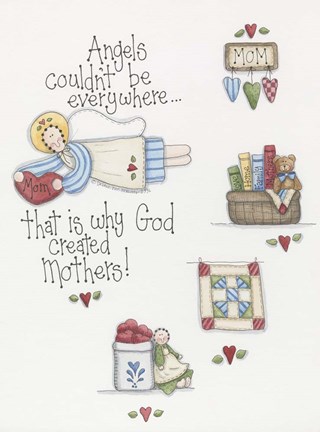 Angels
couldn't be
everywhere...
Mom
that is why God
created
Mothers!
MOM